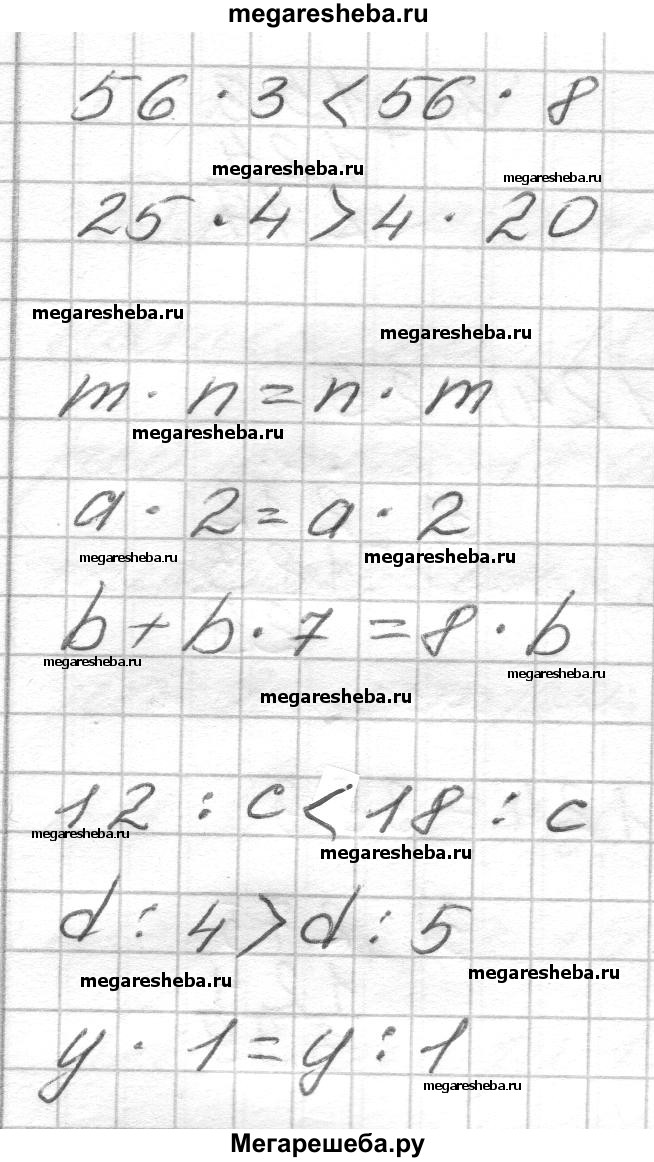 megaresheba.ru
56 · 3 < 56 · 8
megaresheba.ru megaresheba.ru
25 · 4 > 4 · 20
megaresheba.ru megaresheba.ru
m · n = n · m
megaresheba.ru
a · 2 = a · 2
megaresheba.ru megaresheba.ru
b + b · 7 = 8 · b
megaresheba.ru megaresheba.ru
megaresheba.ru
12 : c < 18 : c
megaresheba.ru megaresheba.ru
d : 4 > d : 5
megaresheba.ru megaresheba.ru
y · 1 = y : 1
megaresheba.ru
Мегарешеба.ру